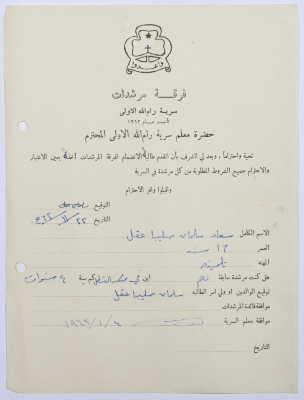 واعدوا
فرقة مرشدات
سرية رام الله الاولى
تأسست عام ١٩٦٢
حضرة معلم سرية رام الله الاولى المحترم
تحية واحتراماً ، وبعد لي الشرف بأن اتقدم طالبة الانضمام لفرقة المرشدات آخذة بعين الاعتبار
والاحترام جميع الشروط المطلوبة من كل مرشدة في السرية
واقبلوا وافر الاحترام
التوقيع سعاد
التاريخ
الاسم الكامل سعاد سلمان صليبا عقل
العمر ١٦ سنة
المهنة تلميذة
هل كنت مرشدة سابقا نعم اين في كم سنة ٤ سنوات
توقيع الوالدين او ولي امر الطالبة سلمان صليبا عقل
موافقة قائدة المرشدات
موافقة معلم السرية
التاريخ